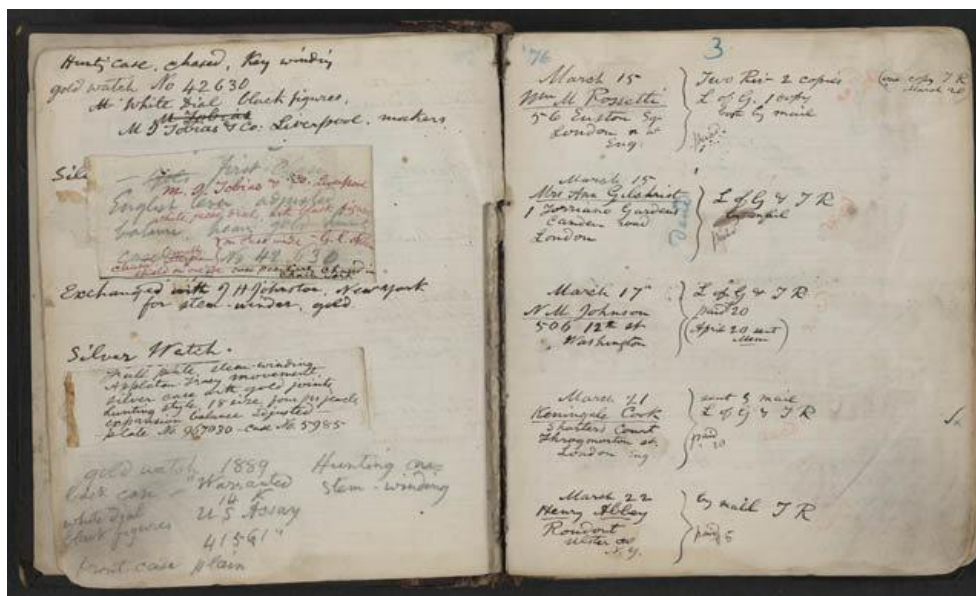 Hunt'g case, chased, Key windin
gold watch No 42630
M White Dial black figures,
M Tobias
M I Tobias & Co: Liverpool, makers
Silv
first class
M. I. Tobias & Co. Liverpool
English lever adjusted
white dial, with black figures
balance, heavy gold hunt
case
No 42,630
Exchanged with J H Johnston, New York
for stem-winder, gold
Silver Watch.
Full plate, stem-winding
Appleton Tracy movement.
silver case with gold joints
hunting style, 18 size, four prs jewels
expansion balance adjusted—
plate No 957030 - case No. 5985
gold watch 1889 Hunting case
back case — "Warranted stem-winding
14 K
white dial U S Assay
black figures
41561"
front case plain
'76
3
March 15
Wm M Rossetti
56 Euston Sq
London n w
Eng.
Two Riv- 2 copies
L of G. 1 copy
both by mail
paid
(one copy T R
March 20)
March 15
Mrs Ann Gilchrist
1 Torriano Gardens
Camden road
London
L of G & T R
by mail
paid
March 17
N M Johnson
506 12th st
Washington
L of G & T R
paid 20
(April 20 sent
Mem)
March 21
Keningale Cook
Shotters Court
Throgmorton st.
London Eng
sent by mail
L of G & T R
paid
20
March 22
Henry Abbey
Rondout
Ulster co
N. Y.
by mail T R
paid 5